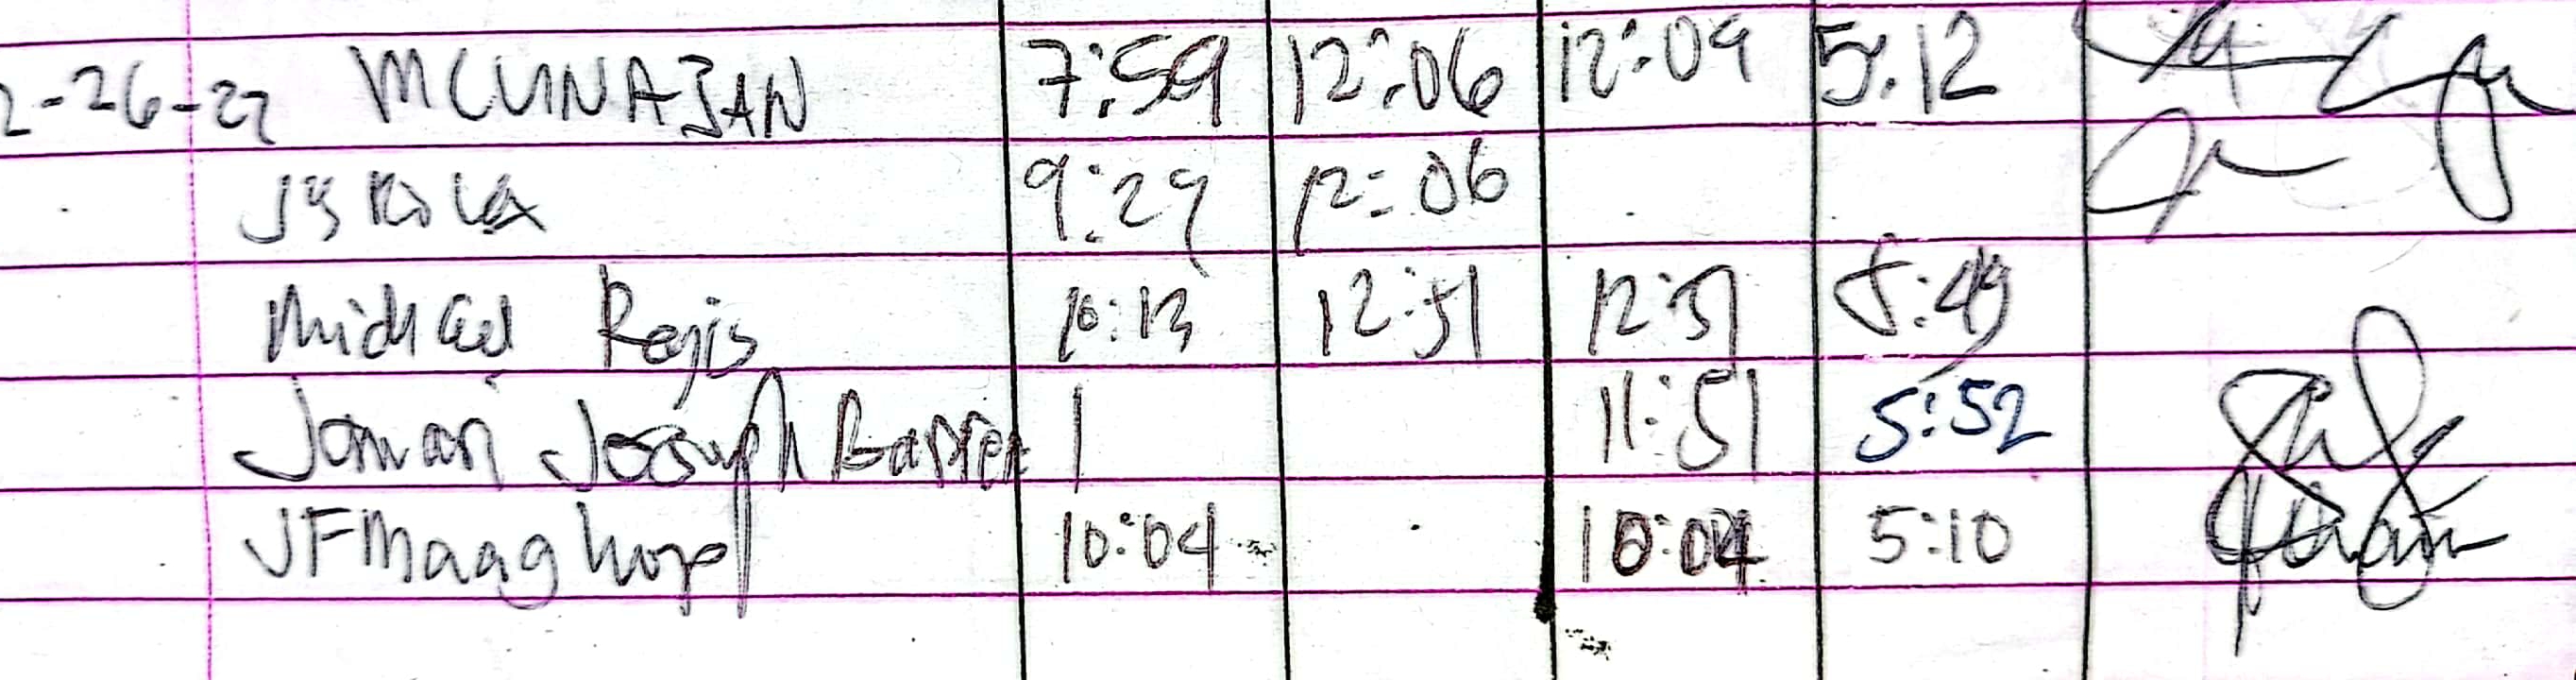 2-26-27 MCUNAJAN 7:59 12:06 12:09 5:12
9:29 12:06
Michael Regis 10:13 12:51 12:51 5:49
Jomari Joseph 11:51 5:52
JFMaaghop 10:04 10:04 5:10